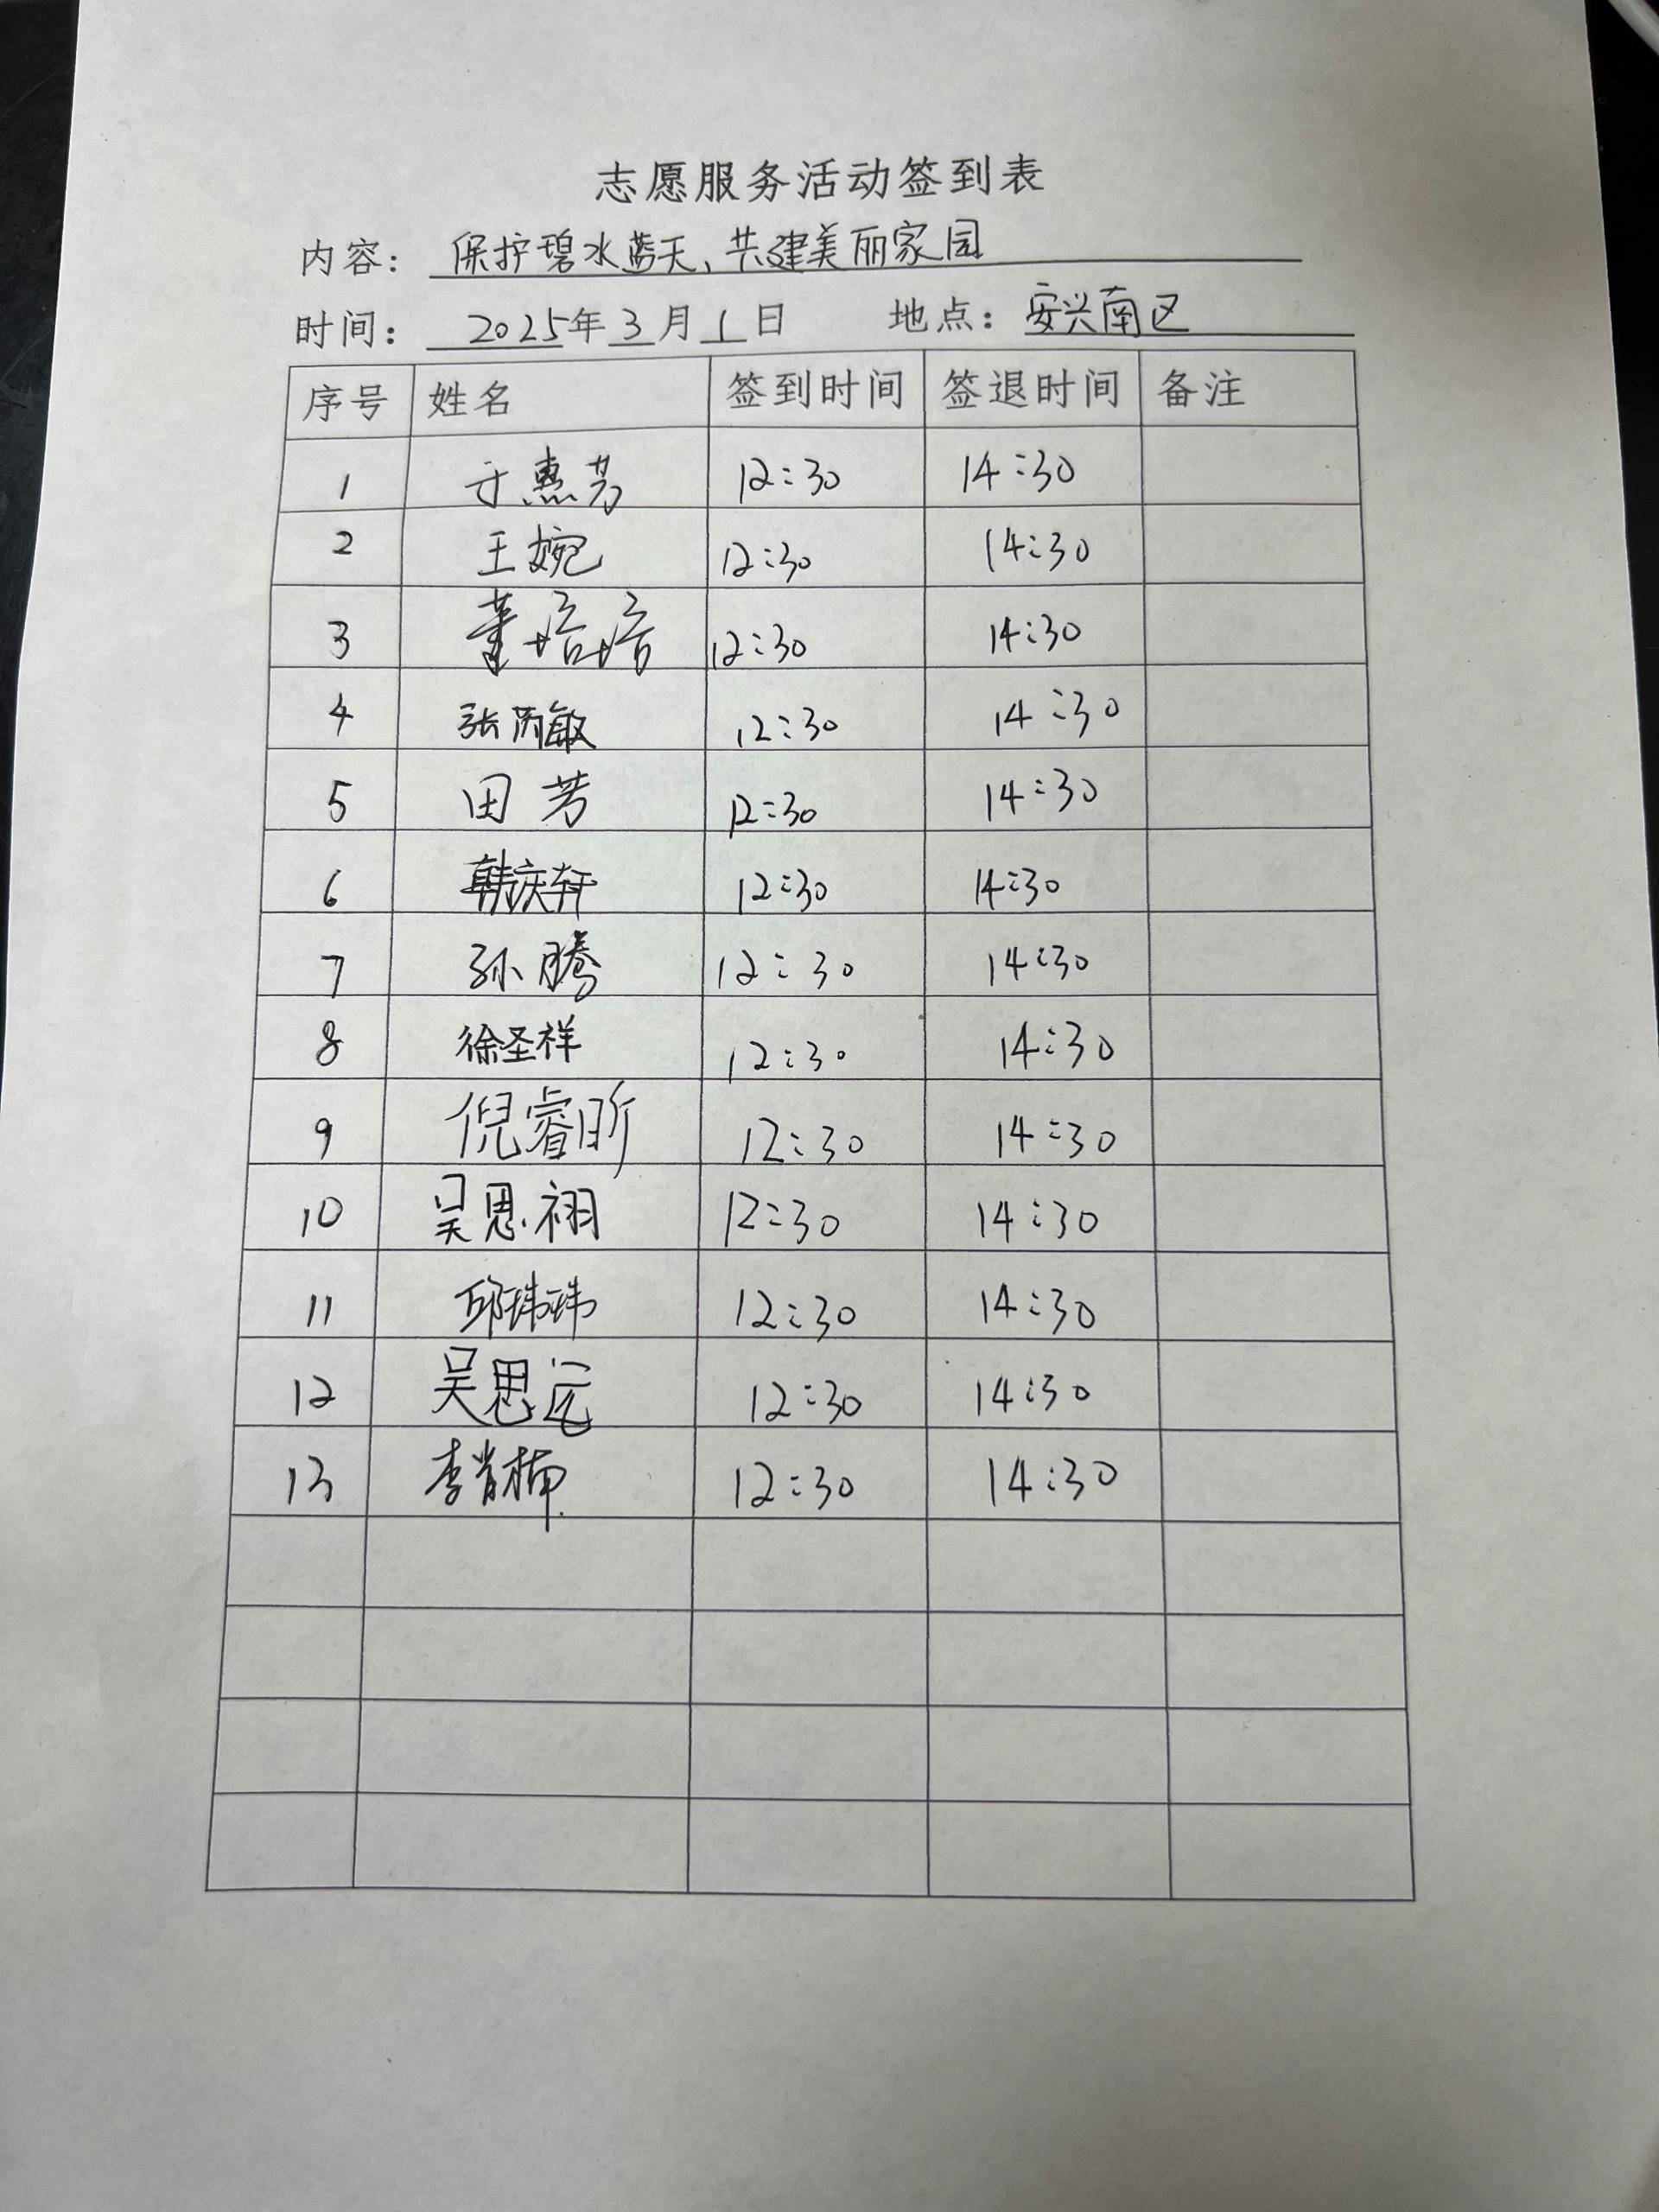 志愿服务活动签到表
内容: 保护碧水蓝天、共建美丽家园
时间: 2025年3月1日 地点: 安兴南区
序号 姓名 签到时间 签退时间 备注
1 于惠芳 12:30 14:30
2 王婉 12:30 14:30
3 董培培 12:30 14:30
4 张芮敏 12:30 14:30
5 田芳 12:30 14:30
6 韩庆轩 12:30 14:30
7 孙腾 12:30 14:30
8 徐圣祥 12:30 14:30
9 倪睿昕 12:30 14:30
10 吴思祤 12:30 14:30
11 邱玮玮 12:30 14:30
12 吴思远 12:30 14:30
13 李肖楠 12:30 14:30